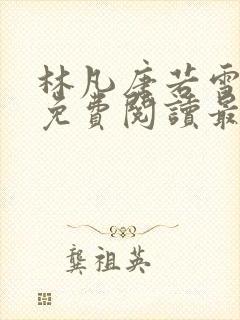 林凡唐若雪
免費閱讀最
龔祖英